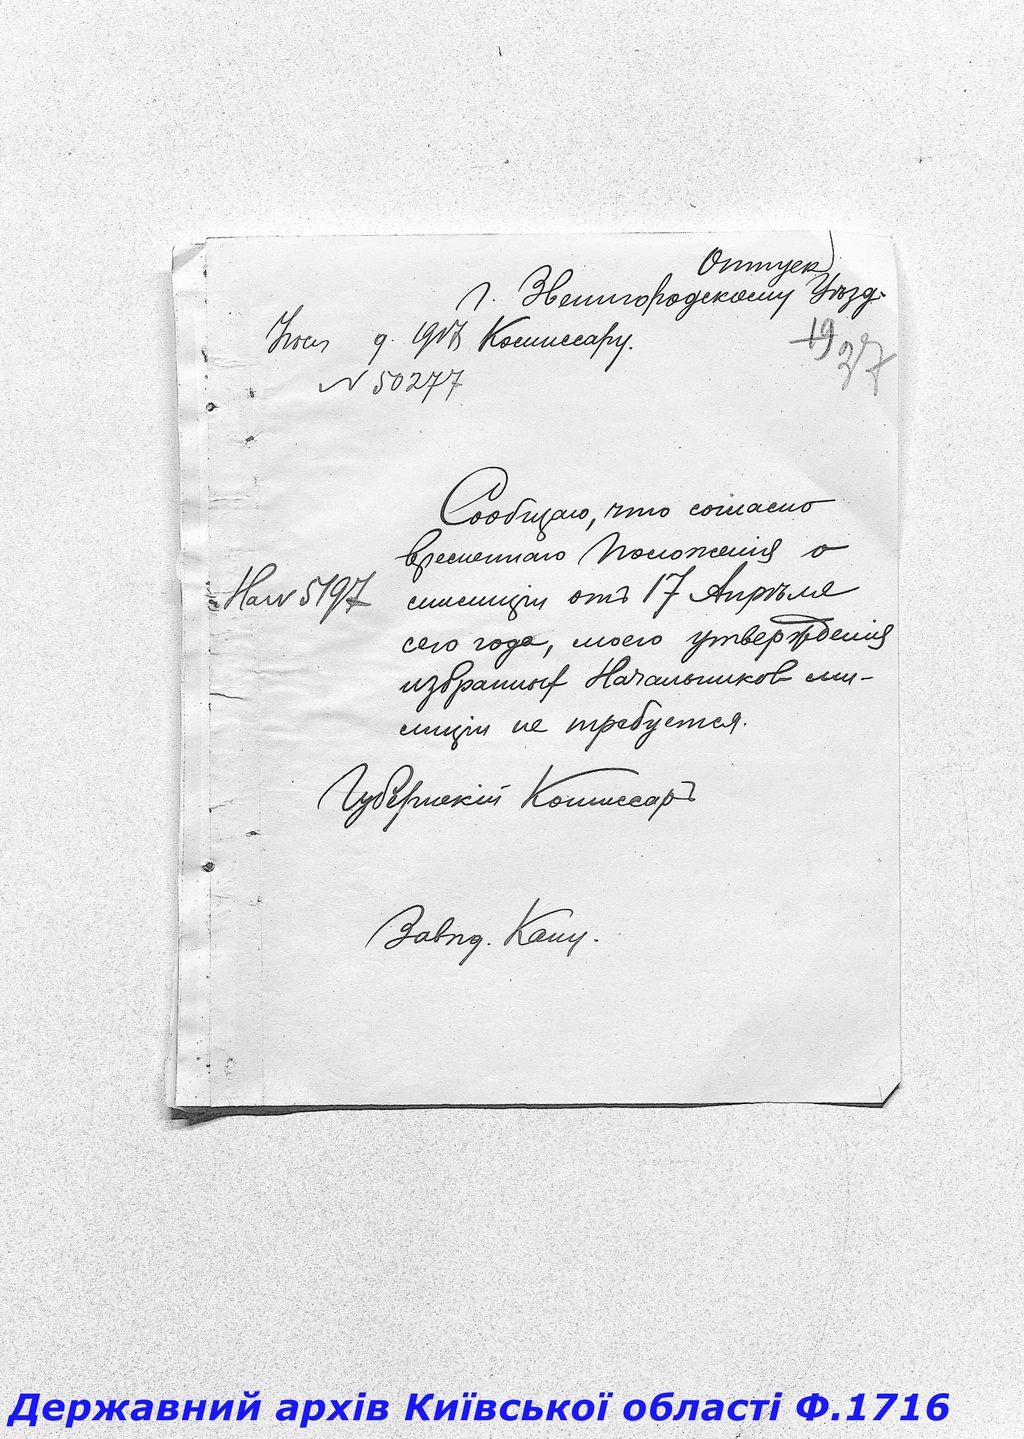 Отпуск
г. Звенигородскому Уѣзд.
Комиссару.
19
27
д. 1917
N 50277
На N 5197
Сообщаю, что согласно
временнаго Положенія о
милиціи отъ 17 Апрѣля
сего года, моего утвержденія
избранных Начальников ми-
лиціи не требуется.
Губернскій Комиссаръ
Завѣд. Канц.
Державний архів Київської області Ф.1716